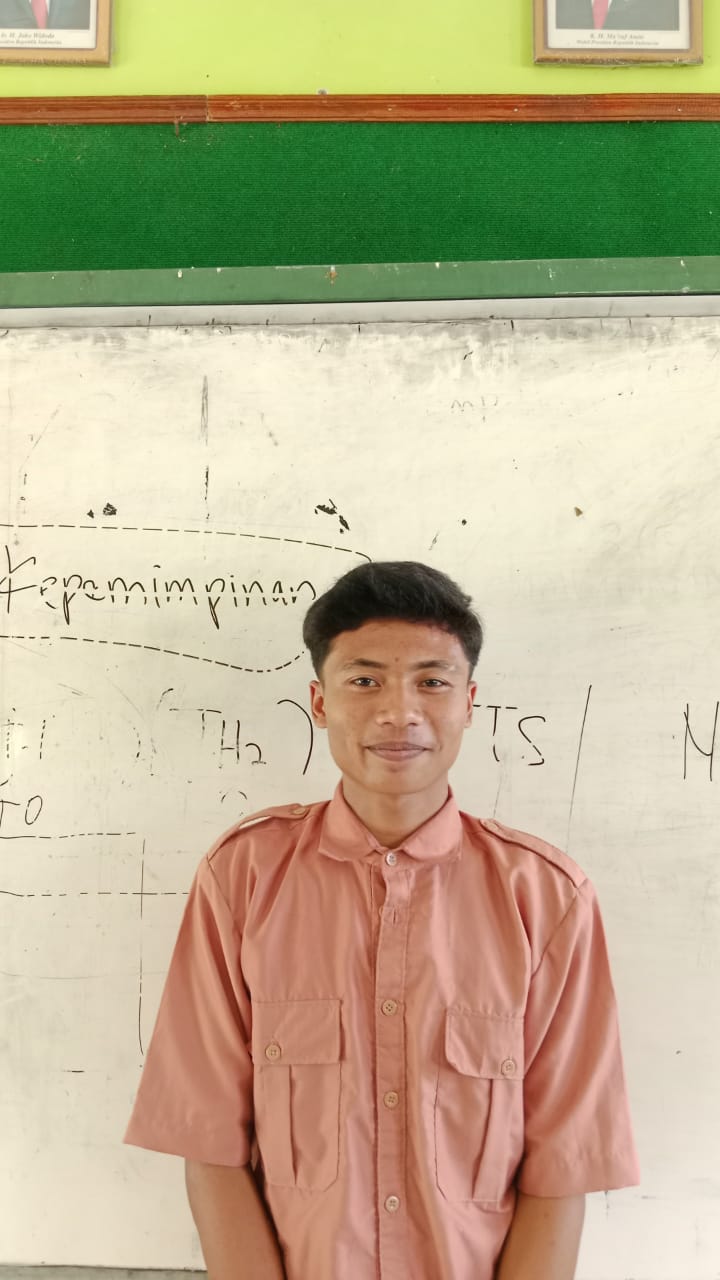 Ir. H. Joko Widodo
Presiden Republik Indonesia
K. H. Ma'ruf Amin
Wakil Presiden Republik Indonesia
Kepemimpinan
( TH2 )
TS /
M
TO